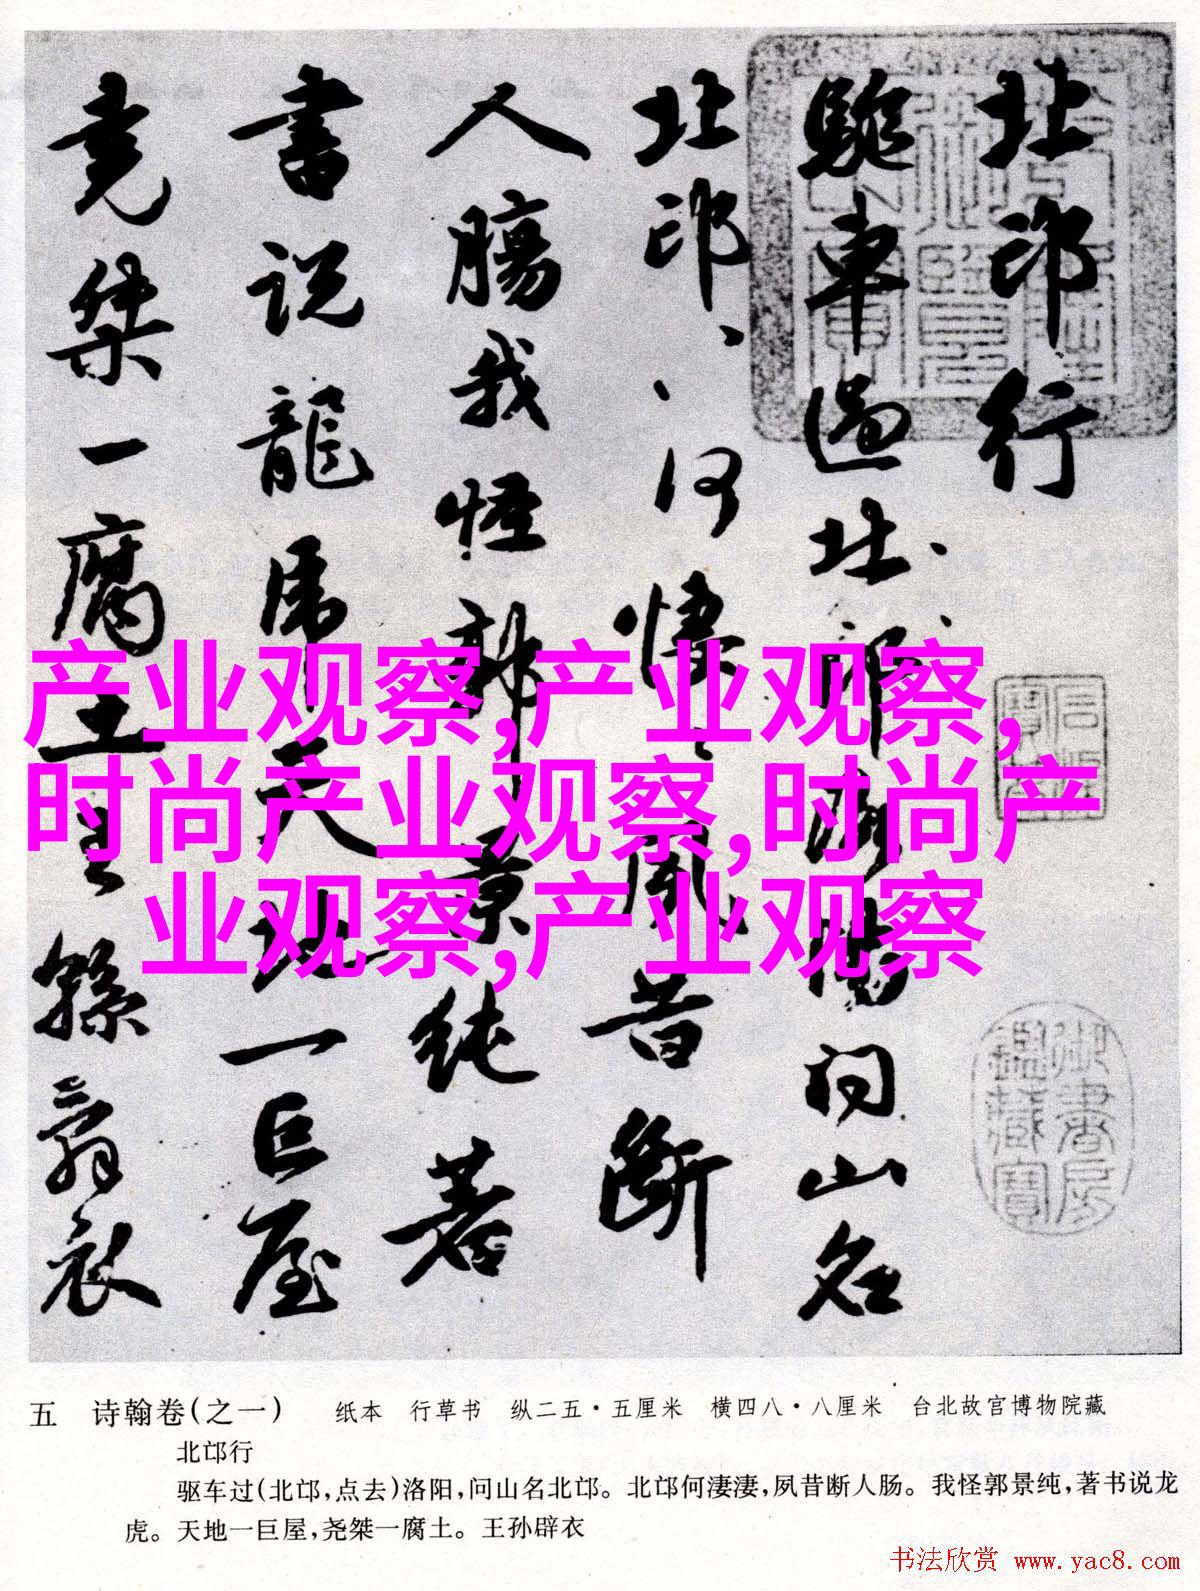 北邙行
驱車過北邙、、洛陽问山名
北邙、、何悽、風昔斷
人腸我怪郭景纯著
書说龍虎天地一巨屋
堯桀一腐土王孫辟衣
产业观察,产业观察,
时尚产业观察,时尚产
业观察,产业观察
御書房鑑藏寶
五 诗翰卷(之一) 纸本 行草书 纵二五·五厘米 横四八·八厘米 台北故宫博物院藏
北邙行
驱车过(北邙,点去)洛阳,问山名北邙。北邙何淒淒,夙昔断人肠。我怪郭景纯,著书说龙
虎。天地一巨屋,尧桀一腐土。王孙辟衣
书法欣赏 www.yac8.com